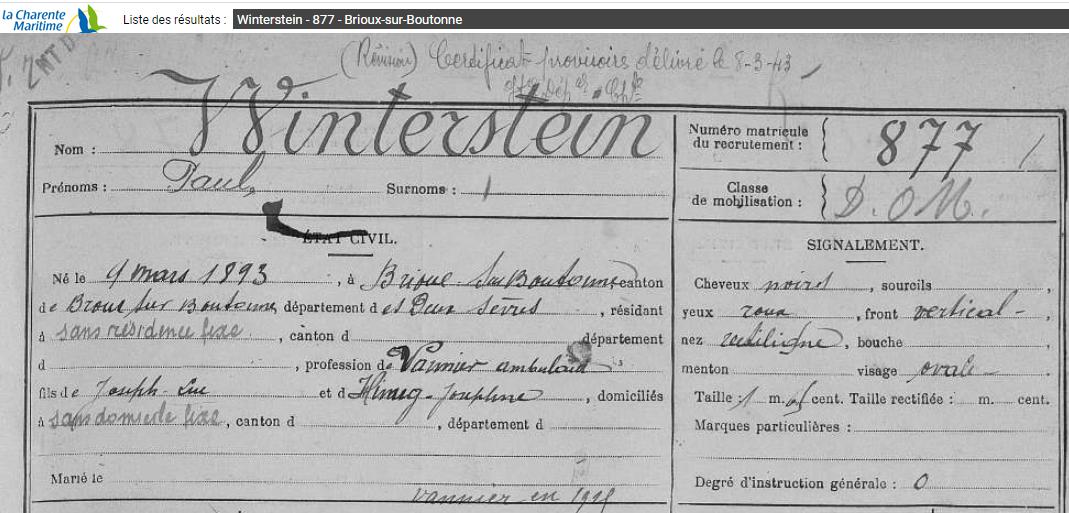 la Charente
Maritime
Liste des résultats : Winterstein - 877 - Brioux-sur-Boutonne
(Révision) Certificat provisoire délivré le 8-3-43
Nom : Winterstein
Prénoms : Paul Surnoms : /
Numéro matricule
du recrutement : 877
Classe
de mobilisation : D. O M.
ÉTAT CIVIL.
Né le 9 mars 1893, à Brioux sur Boutonne canton
de Brioux sur Boutonne, département des Deux Sèvres, résidant
à sans résidence fixe, canton d département
d , profession de Vannier ambulant
fils de Joseph-Luc et d Josephine, domiciliés
à sans domicile fixe, canton d , département d
Marié le
vannier en
SIGNALEMENT.
Cheveux noirs, sourcils ,
yeux roux, front vertical ,
nez rectiligne, bouche ,
menton visage ovale
Taille : 1 m. cent. Taille rectifiée : m. cent.
Marques particulières :
Degré d'instruction générale : 0